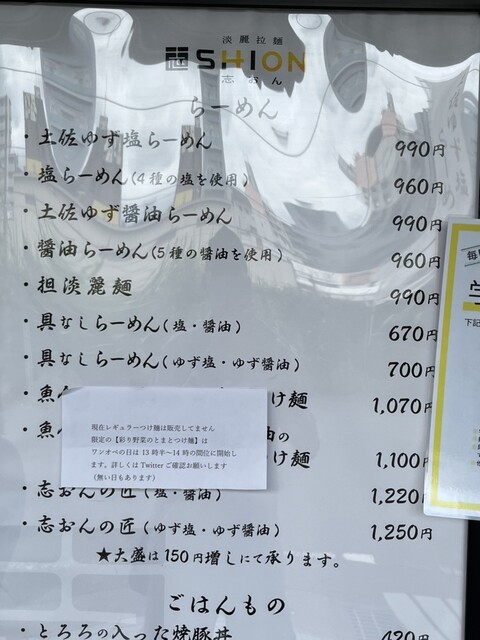 淡麗拉麺
SHION
志おん
らーめん
・土佐ゆず塩らーめん 990円
・塩らーめん(4種の塩を使用) 960円
・土佐ゆず醤油らーめん 990円
・醤油らーめん(5種の醤油を使用) 960円
・担淡麗麺 990円
・具なしらーめん(塩・醤油) 670円
・具なしらーめん(ゆず塩・ゆず醤油) 700円
・魚 つけ麺 1,070円
・魚 油の
つけ麺 1,100円
現在レギュラーつけ麺は販売してません
限定の【彩り野菜のとまとつけ麺】は
ワンオペの日は13時半〜14時の間位に開始し
ます。詳しくはTwitterご確認お願いします
(無い日もあります)
・志おんの匠(塩・醤油) 1,220円
・志おんの匠(ゆず塩・ゆず醤油) 1,250円
★大盛は150円増しにて承ります。
ごはんもの
・とろろの入った焼豚丼 420円
毎
下記